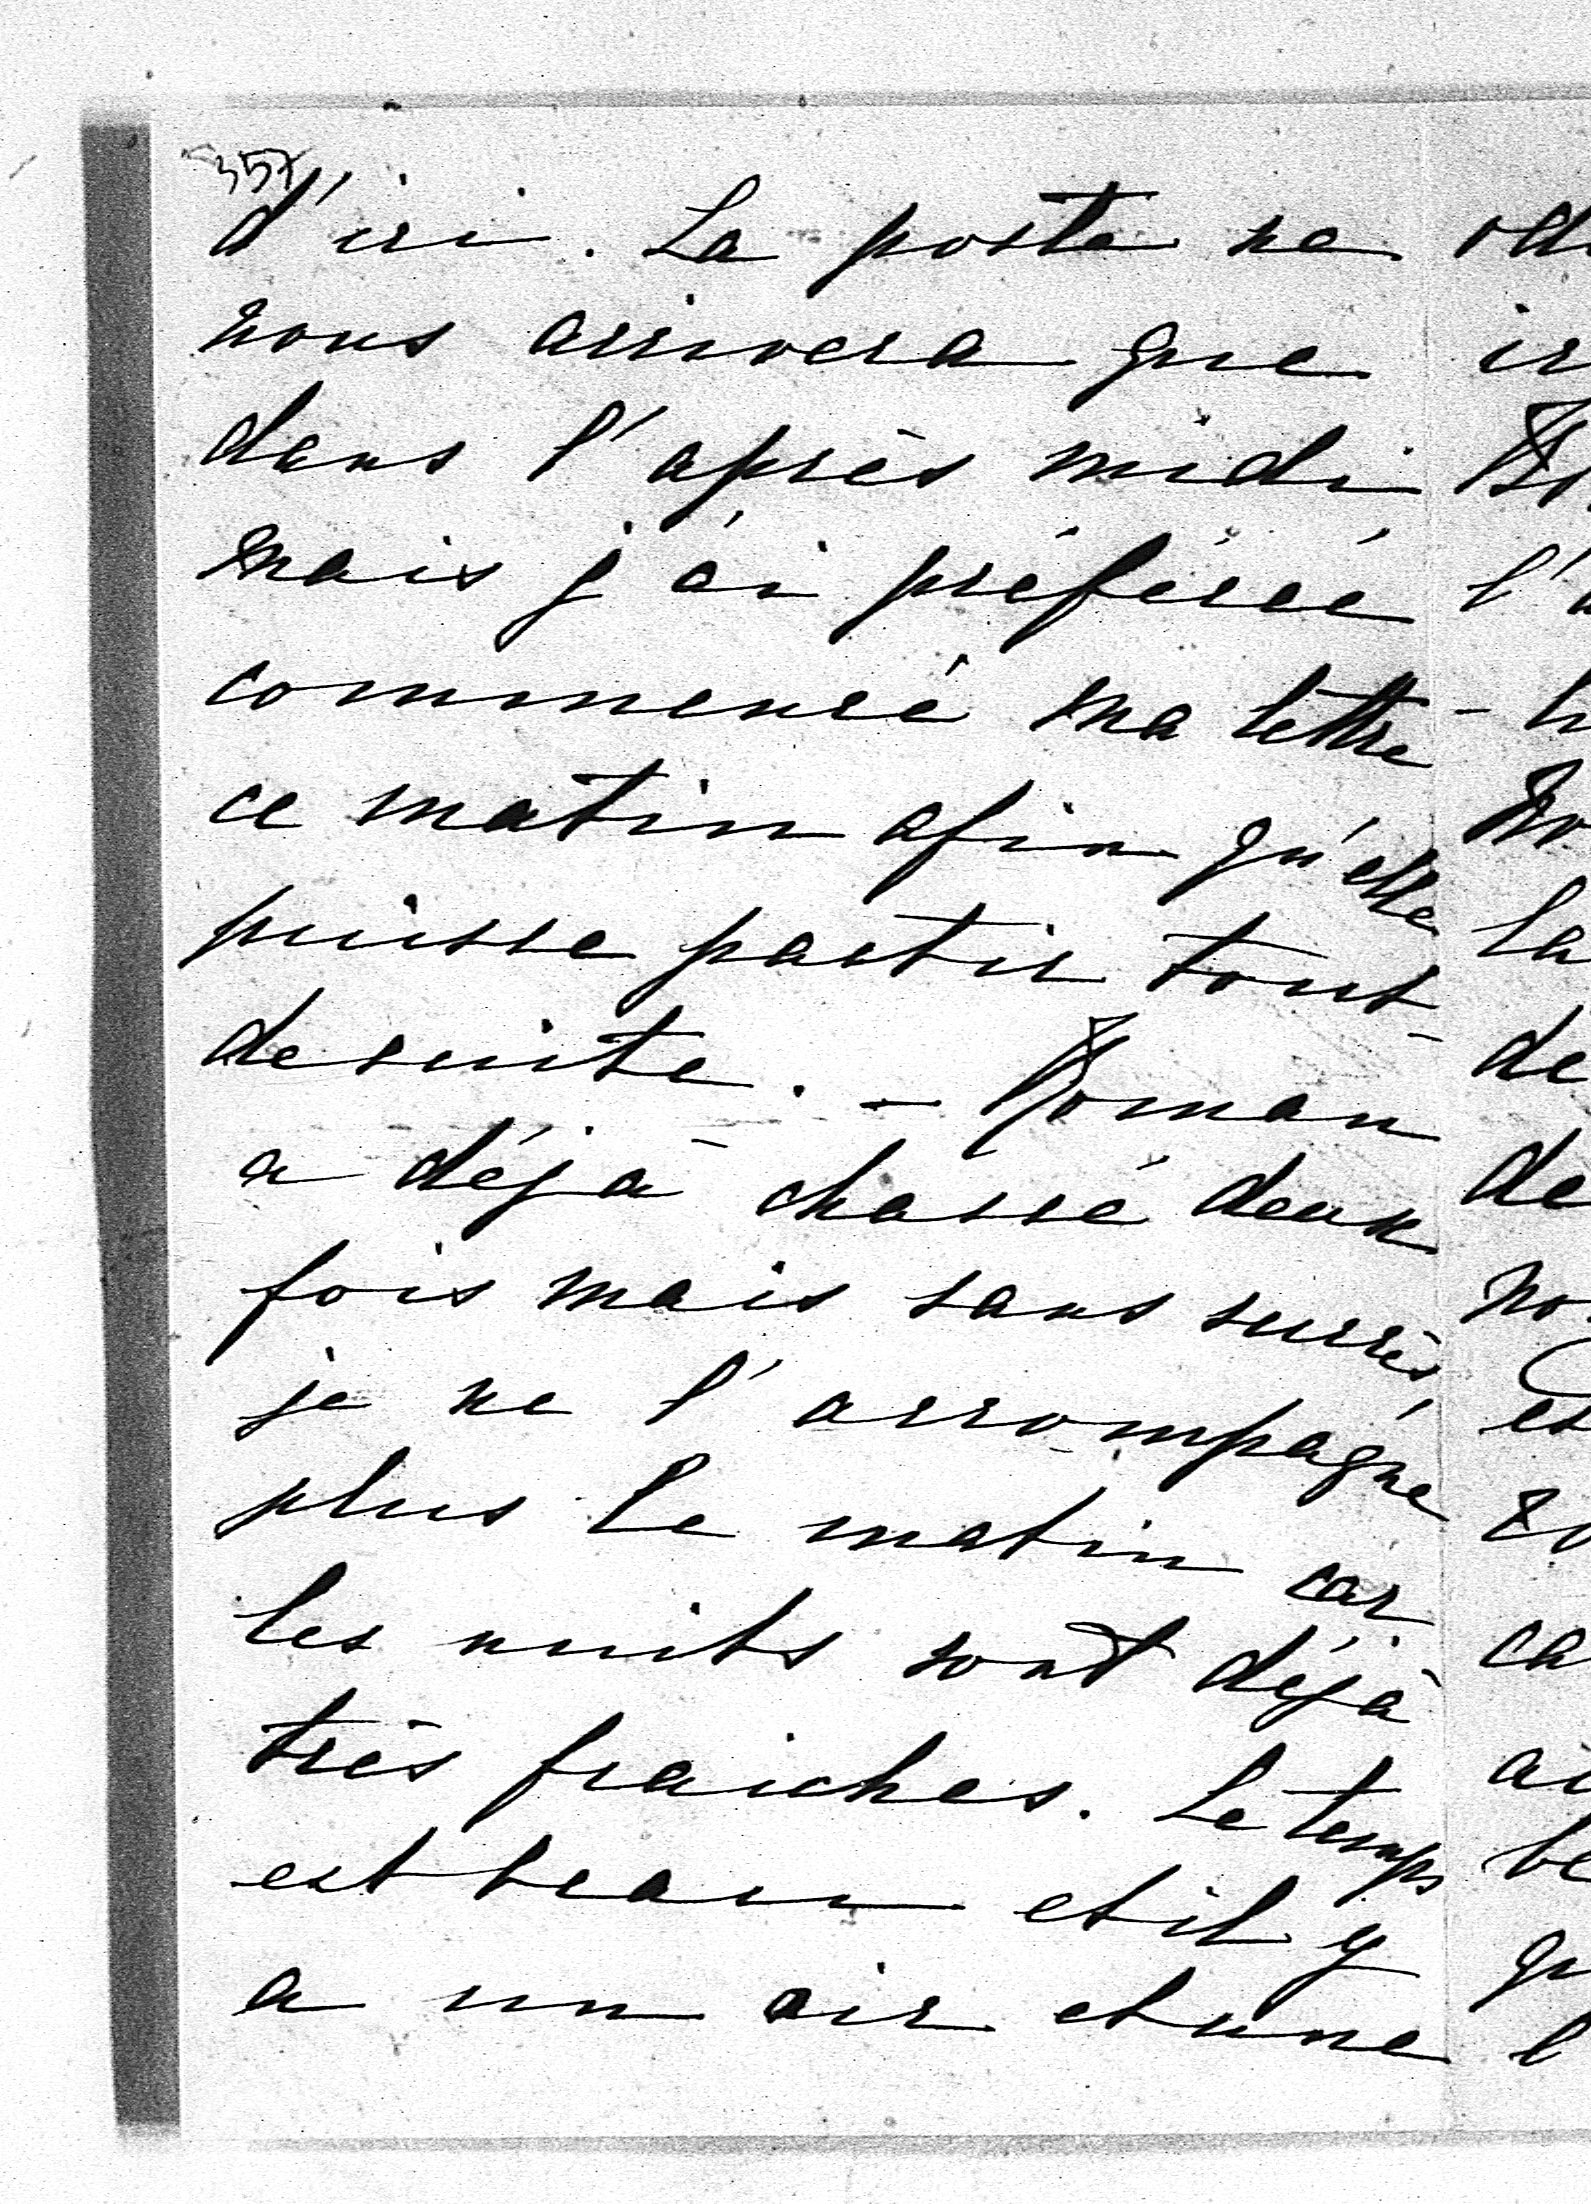 357
d'ici. La poste ne
nous arrivera que
dans l'après midi
mais j'ai préférée
commencé ma lettre
ce matin afin qu'elle
puisse partir tout-
desuite. – Roman
a déjà chassé deux
fois mais sans succès,
je ne l'accompagne
plus le matin car
les nuits sont déjà
très fraiches. Le temps
est beau et il y
a un air et une